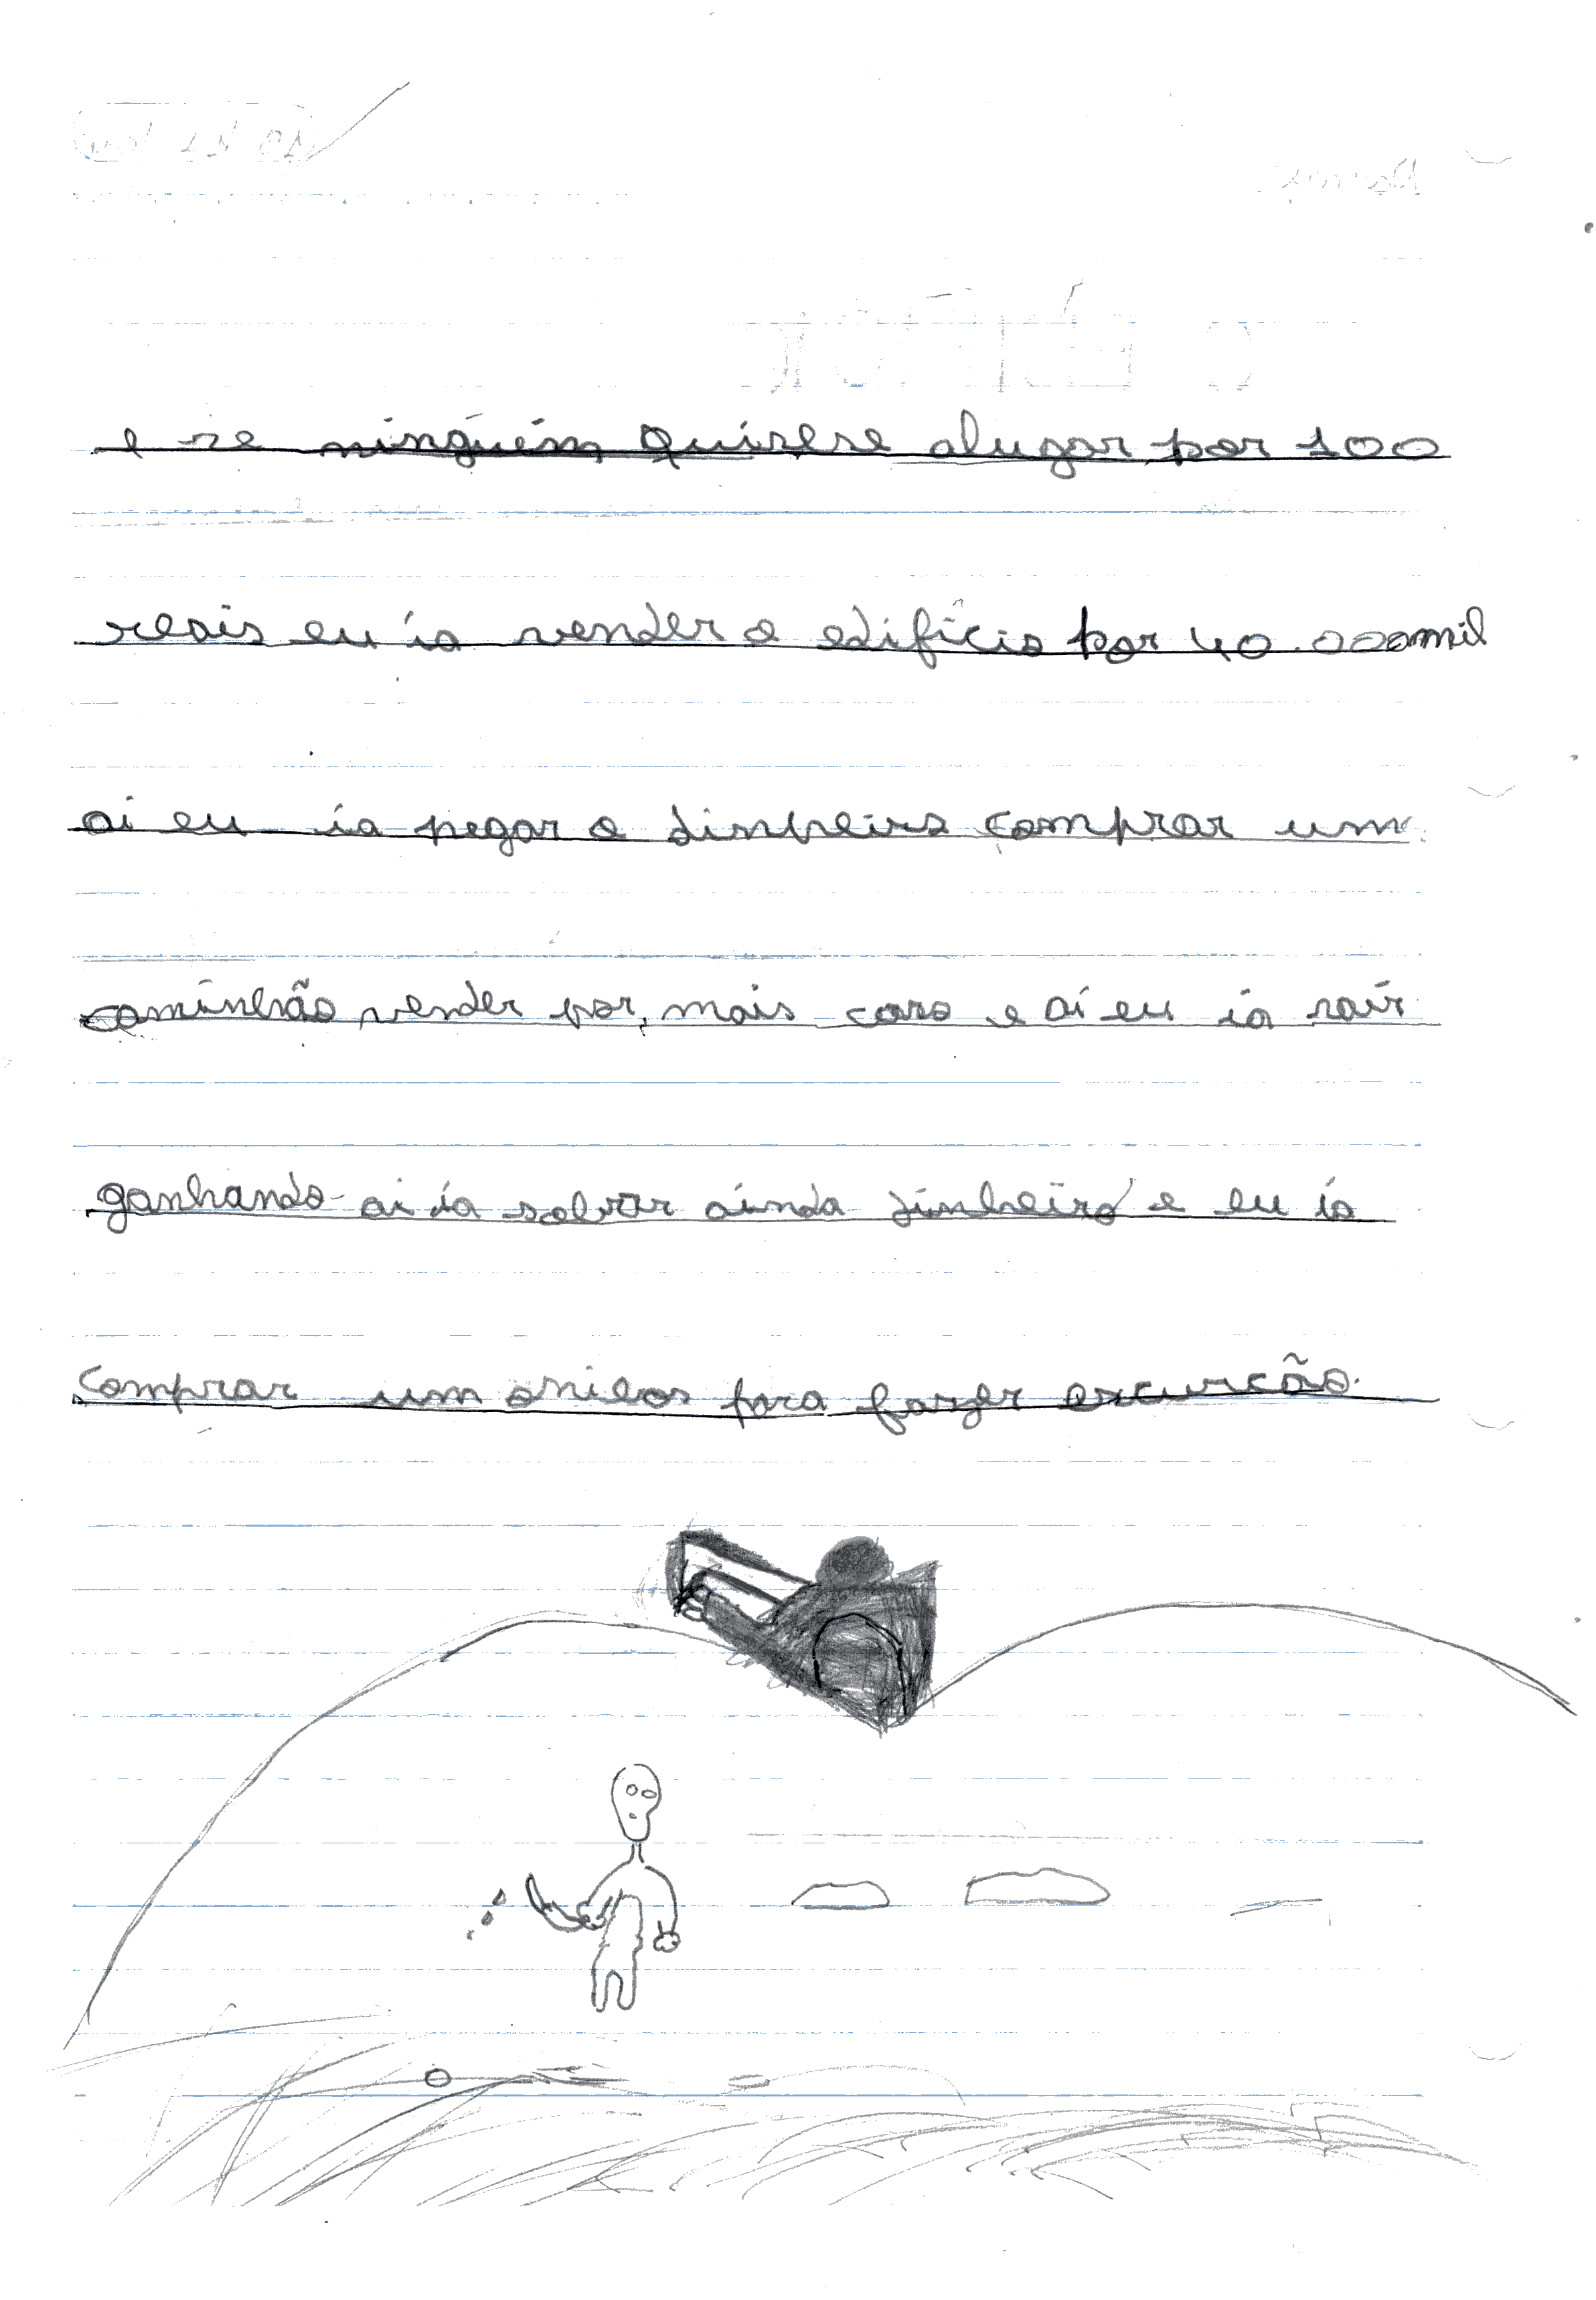 e se ninguém quisese alugar por 100
reais eu ia vender o edifício por 40.000mil
ai eu ia pegar o dinheiro comprar um
caminhão vender por mais caro e aí eu ia sair
ganhando ai ia sobrar ainda dinheiro e eu ia
comprar um onibos para fazer escurcão.